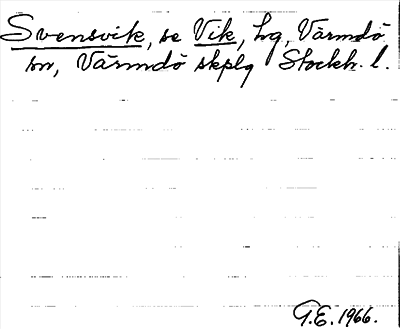 Svensvik, se Vik, hg, Värmdö
sn, Värmdö skplg Stockh. l.
G.E. 1966.